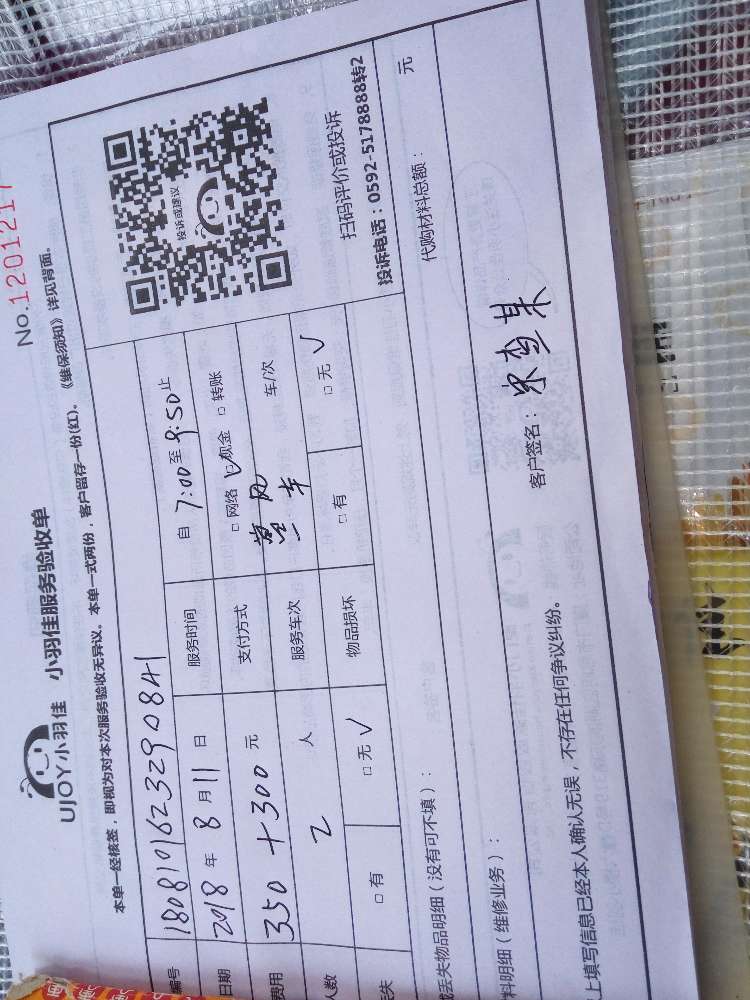 No.1201217
UJOY小羽佳 小羽佳服务验收单
本单一经核签，即视为对本次服务验收无异议。本单一式两份，客户留存一份(红)。《维保须知》详见背面。
编号 1808101623290841
日期 2018 年 8 月 11 日 服务时间 自 7:00 至 9:50 止
费用 350+300 元 支付方式 □网络 □现金 □转账
人数 2 人 服务车次 车/次
丢失 □有 □无 √ 物品损坏 □有 □无 √
投诉或建议
扫码评价或投诉
投诉电话：0592-5178888转2
或丢失物品明细（没有可不填）：
代购材料总额： 元
料明细（维修业务）：
上填写信息已经本人确认无误，不存在任何争议纠纷。 客户签名：